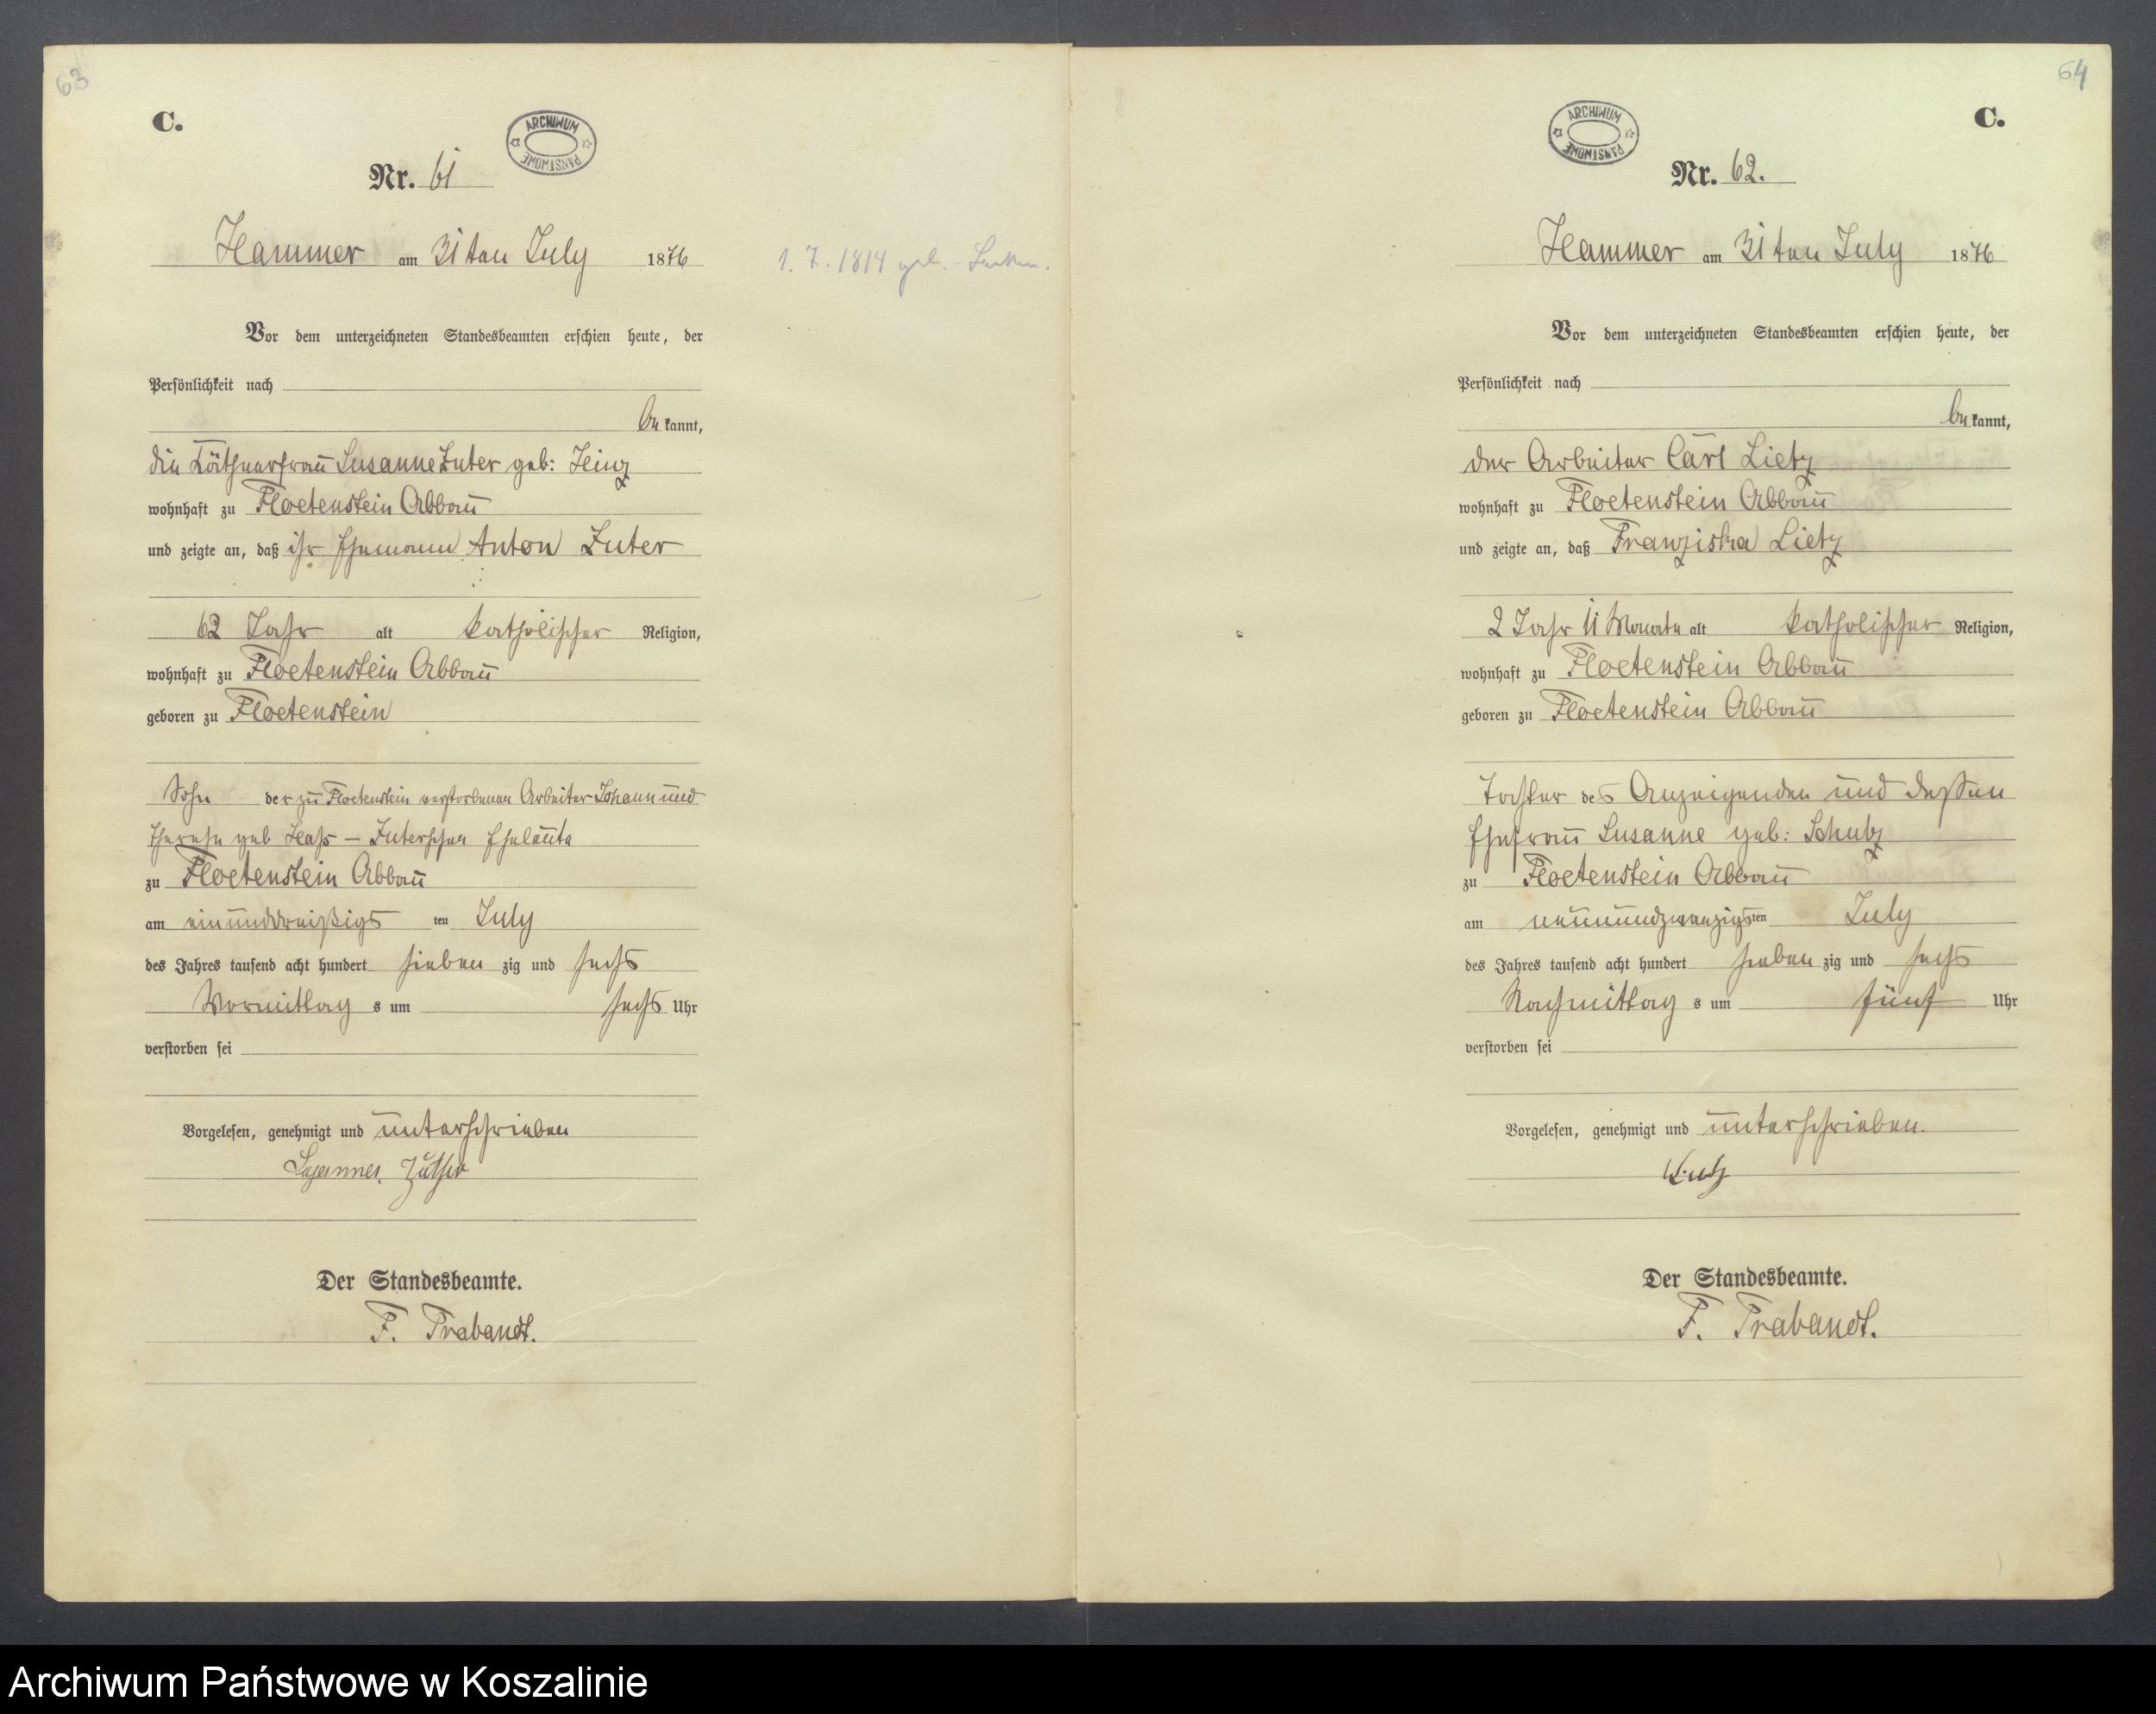 63
C.
ARCHIWUM PAŃSTWOWE
Nr. 61
Hammer am 31ten July 1876
1. 7. 1814 geb.
Vor dem unterzeichneten Standesbeamten erschien heute, der
Persönlichkeit nach
bekannt,
die Käthnerfrau Susanne Zuter geb: Heinz
wohnhaft zu Floetenstein Abbau
und zeigte an, daß ihr Ehemann Anton Zuter
62 Jahr alt katholischer Religion,
wohnhaft zu Floetenstein Abbau
geboren zu Floetenstein
Sohn der zu Floetenstein verstorbenen Arbeiter Johann und
Therese geb Hass – Zuterschen Eheleute
zu Floetenstein Abbau
am einunddreißigs ten July
des Jahres tausend acht hundert sieben zig und sechs
Vormittag s um sechs Uhr
verstorben sei
Vorgelesen, genehmigt und unterschrieben
Susanne Züther
Der Standesbeamte.
F. Trabandt.
64
C.
ARCHIWUM PAŃSTWOWE
Nr. 62.
Hammer am 31ten July 1876
Vor dem unterzeichneten Standesbeamten erschien heute, der
Persönlichkeit nach
bekannt,
der Arbeiter Carl Lietz
wohnhaft zu Floetenstein Abbau
und zeigte an, daß Franziska Lietz
2 Jahr 11 Monate alt katholischer Religion,
wohnhaft zu Floetenstein Abbau
geboren zu Floetenstein Abbau
Tochter des Anzeigenden und dessen
Ehefrau Susanne geb: Schulz
zu Floetenstein Abbau
am neunundzwanzigsten July
des Jahres tausend acht hundert sieben zig und sechs
Nachmittag s um fünf Uhr
verstorben sei
Vorgelesen, genehmigt und unterschrieben.
Lietz
Der Standesbeamte.
F. Trabandt.
Archiwum Państwowe w Koszalinie